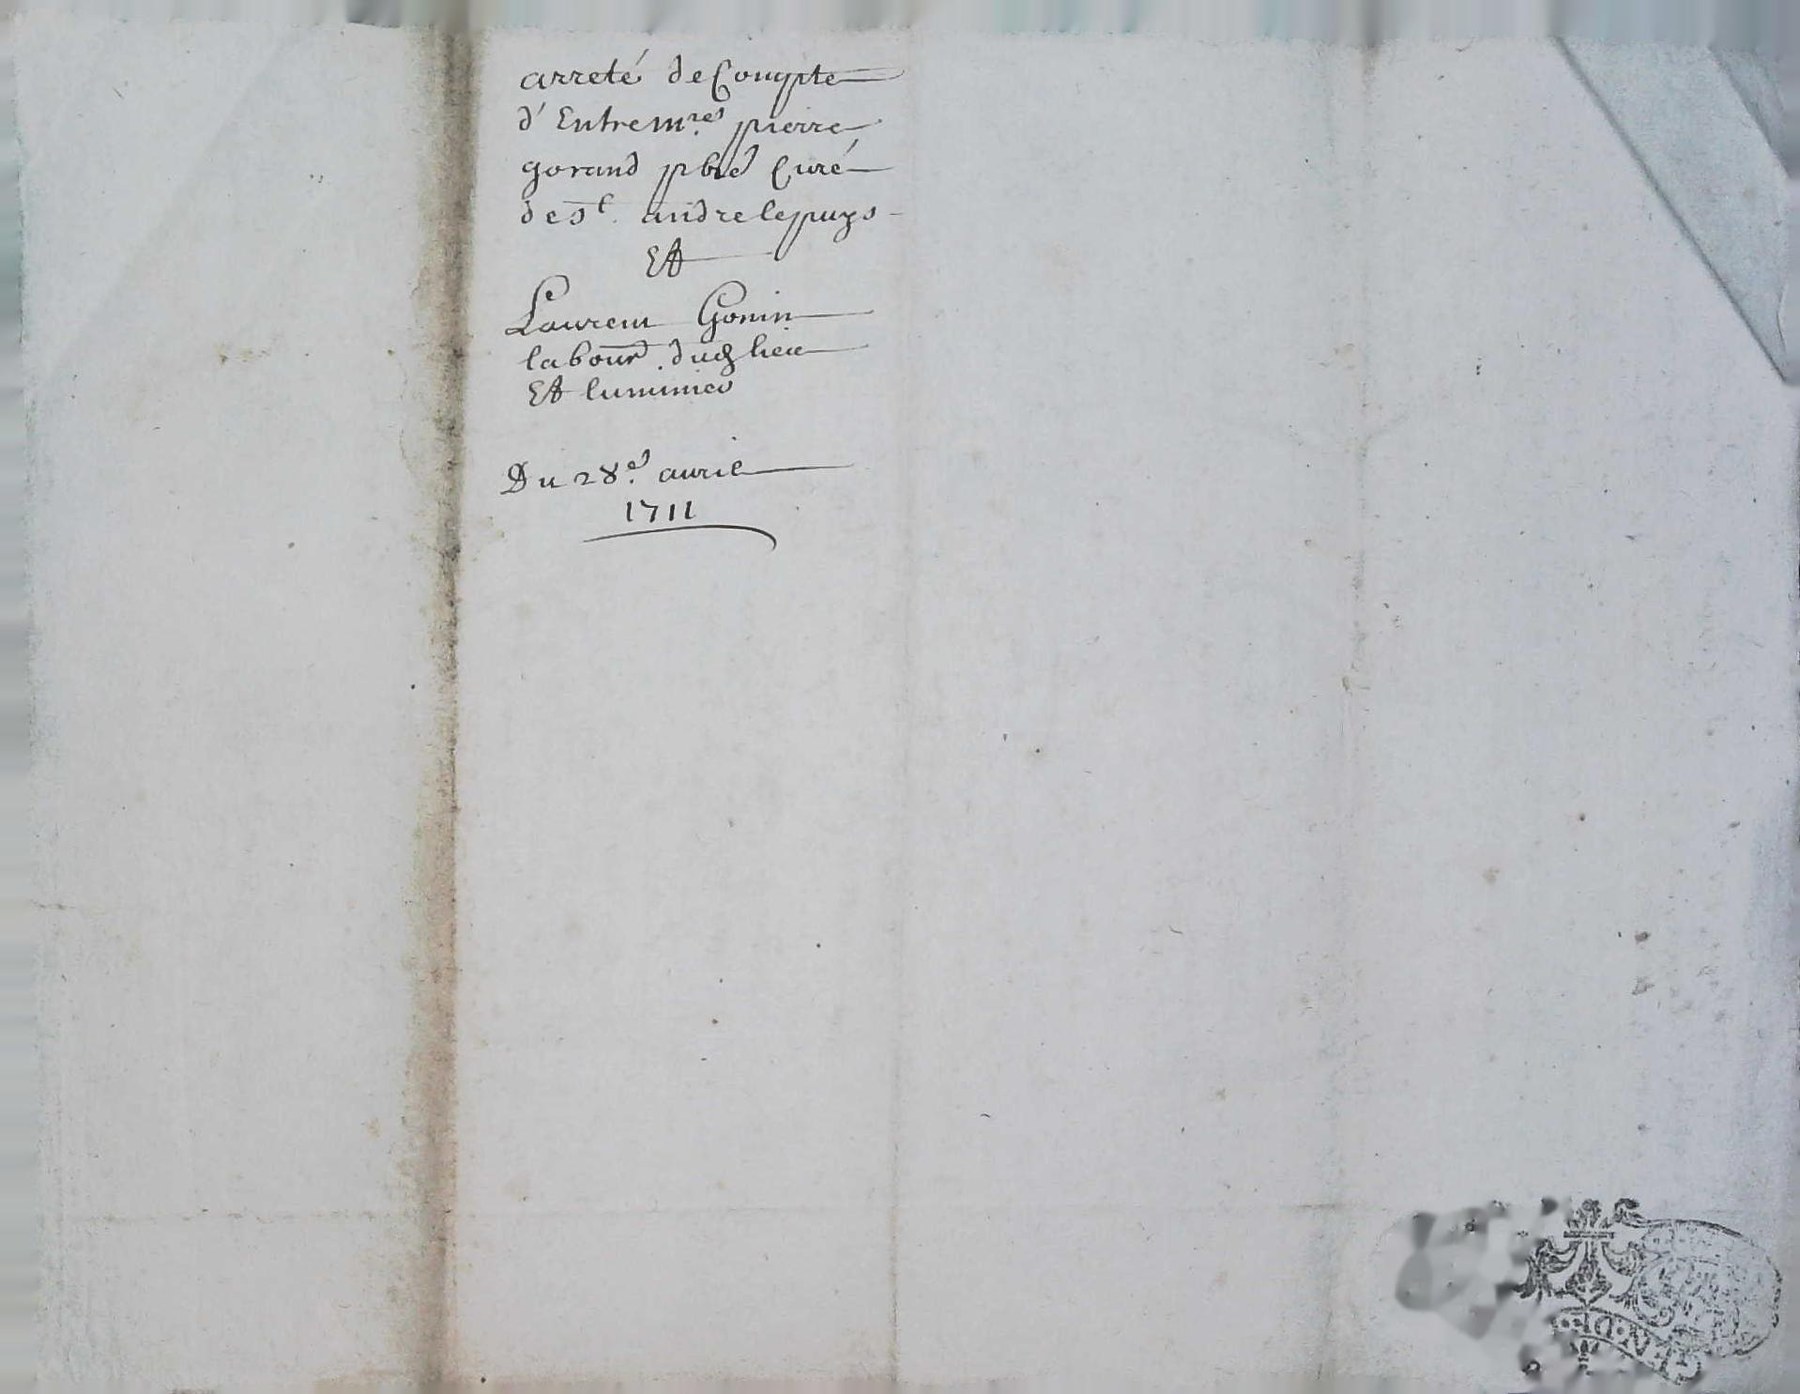 arreté de Compte
d'Entre m.re pierre
gorand pbre Curé
de st. andre le puys
Et
Laurent Gonin
labour. dud lieu
Et luminier
Du 28e. auril
1711